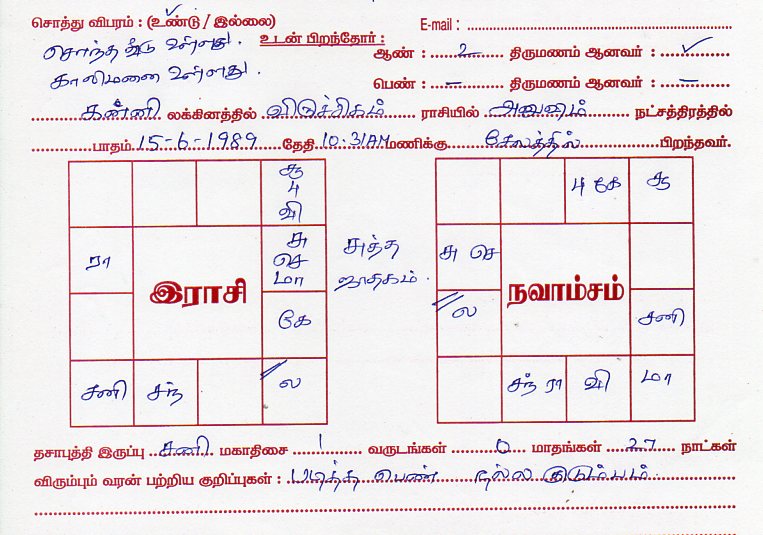 சொத்து விபரம் : (உண்டு / இல்லை) E-mail :
சொந்த வீடு உள்ளது. உடன் பிறந்தோர் : ஆண் : 2 திருமணம் ஆனவர் : ✓
காலிமனை உள்ளது. பெண் : – திருமணம் ஆனவர் : –
கன்னி லக்கினத்தில் விருச்சிகம் ராசியில் அனுஷம் நட்சத்திரத்தில்
பாதம் 15-6-1989 தேதி 10.31AM மணிக்கு சேலத்தில் பிறந்தவர்.
சூ
4
வி
4 கே சூ
ரா
சு
செ
மா
சுத்த
ஜாதகம்.
சு செ
இராசி
நவாம்சம்
கே
ல
சனி
சனி சந் ல
சந் ரா வி மா
தசாபுத்தி இருப்பு சனி மகாதிசை 1 வருடங்கள் 0 மாதங்கள் 27 நாட்கள்
விரும்பும் வரன் பற்றிய குறிப்புகள் : படித்த பெண் நல்ல குடும்பம்.